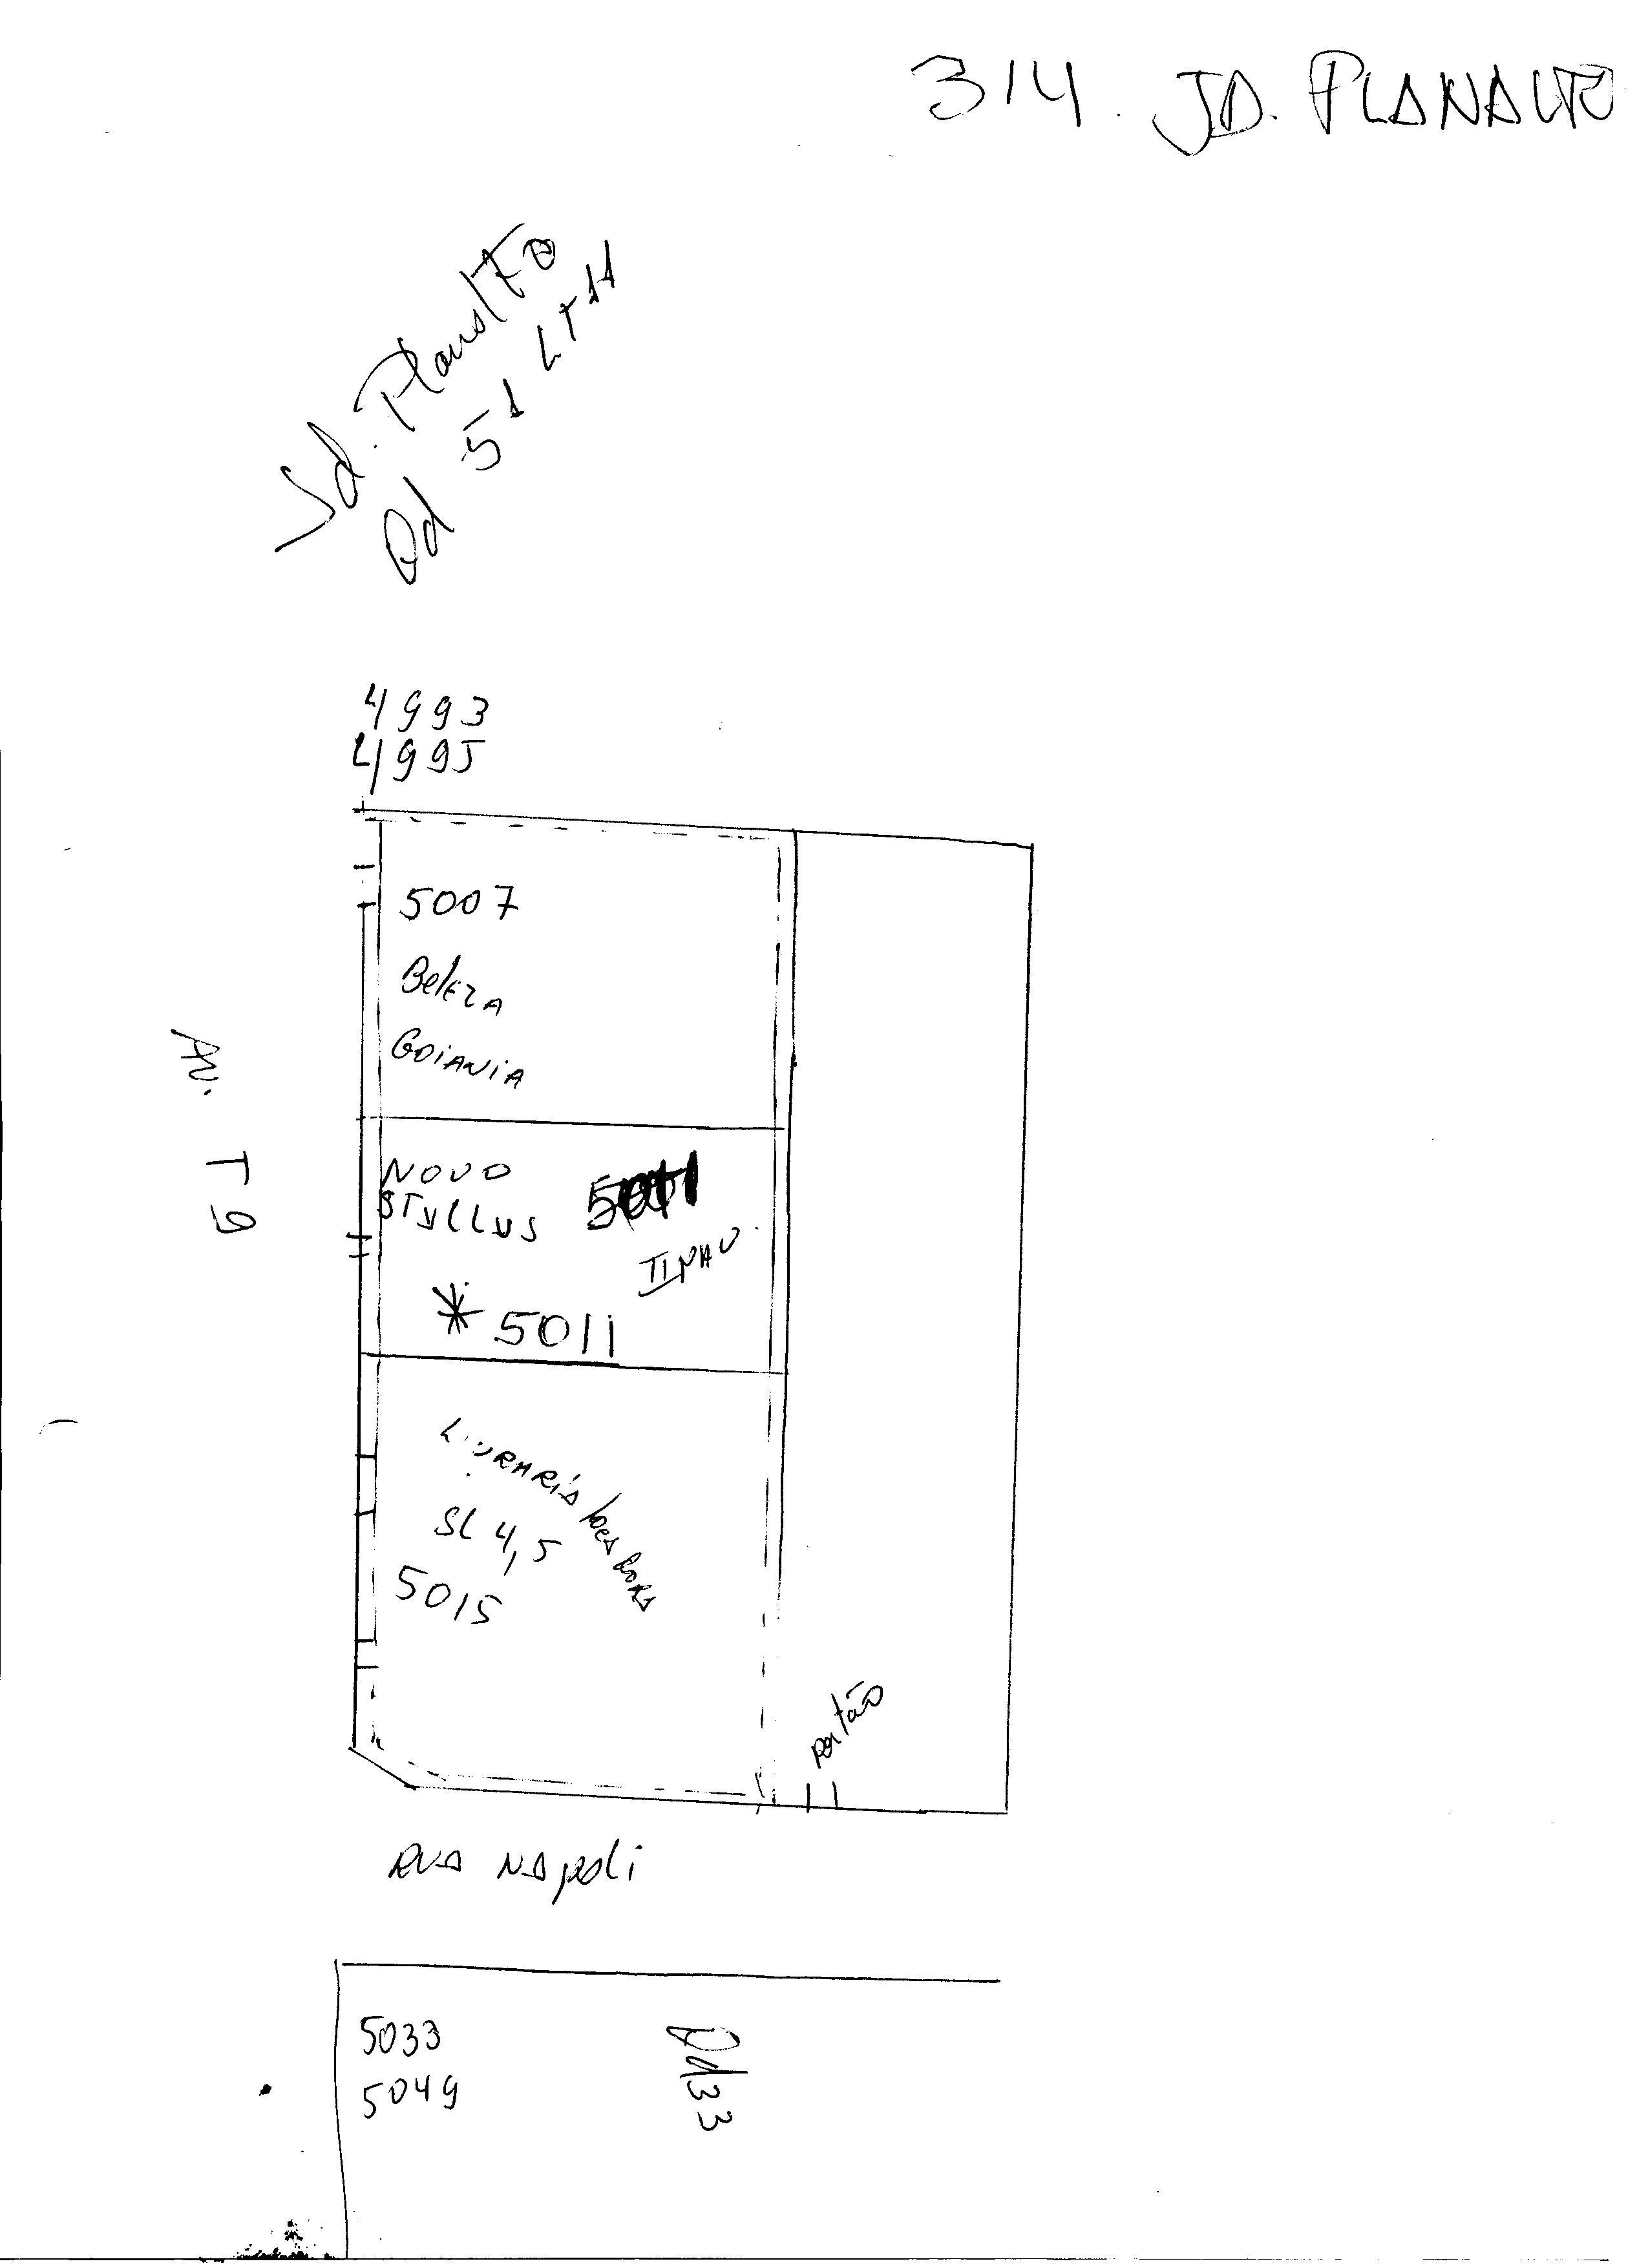 314. JD. PLANALTO
Jd. Planalto
Qd 51 LT 11
4993
4995
5007
Beleza
GOiANiA
AV. T9
NOVO
STYLLUS
* 5011
SL 4,5
5015
portão
RUA NApoli
5033
5049
Qd 33